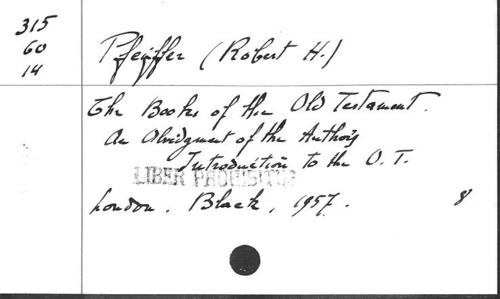 315
60
14
Pfeiffer (Robert H.)
The Books of the Old Testament.
An Abridgment of the Author's
Introduction to the O. T.
LIBER PROHIBITUS
London. Black, 1957.
8